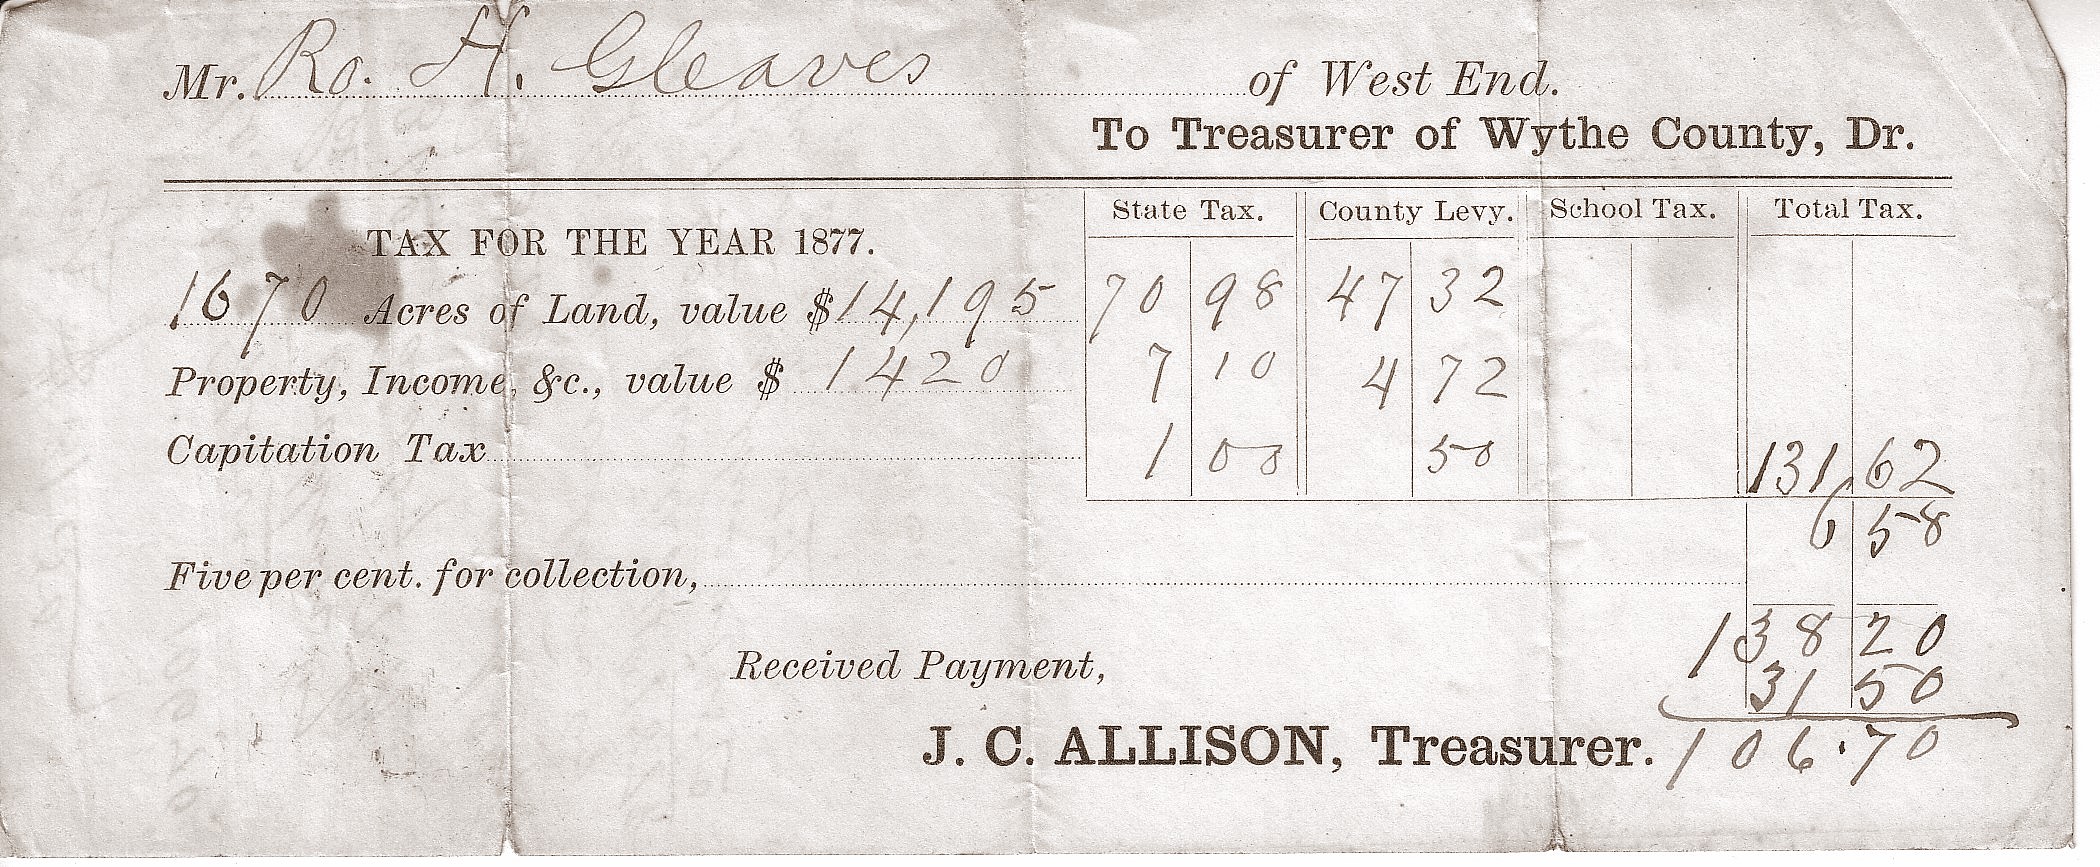 Mr. Ro. H. Gleaves of West End.
To Treasurer of Wythe County, Dr.
State Tax. County Levy. School Tax. Total Tax.
TAX FOR THE YEAR 1877.
1670 Acres of Land, value $14,195 70 98 47 32
Property, Income, &c., value $ 1420 7 10 4 72
Capitation Tax 1 00 50 131,62
6 58
Five per cent. for collection,
138 20
Received Payment, 31 50
J. C. ALLISON, Treasurer. 106.70